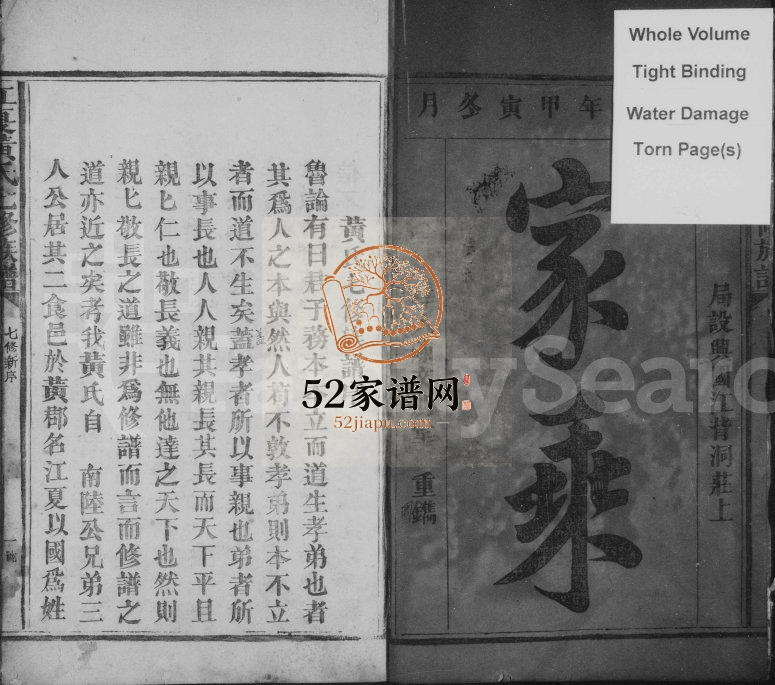 Whole Volume
Tight Binding
Water Damage
Torn Page(s)
年甲寅冬月
家乘
局設興國江背洞莊上
重鐫
江夏黃氏七修族譜
七修新序
黃氏七修
魯論有曰君子務本本立而道生孝弟也者
其爲人之本與然人苟不敦孝弟則本不立
者而道不生矣蓋孝者所以事親也弟者所
以事長也人人親其親長其長而天下平且
親匕仁也敬長義也無他達之天下也然則
親匕敬長之道雖非爲修譜而言而修譜之
道亦近之矣考我黃氏自 南陸公兄弟三
人公居其二食邑於黃郡名江夏以國爲姓
52家谱网
52jiapu.com